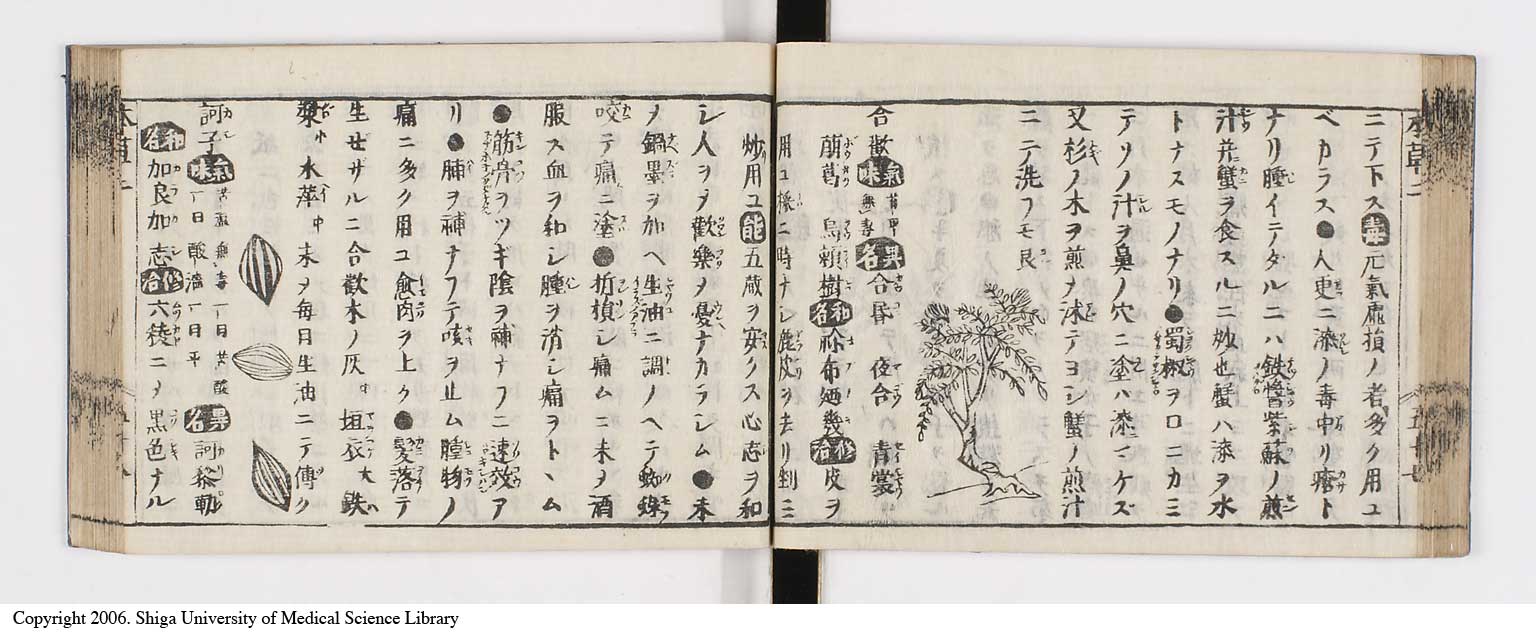 ニテ下ス毒元氣虛損ノ者多ク用ユ
ベカラス●人更ニ漆ノ毒中リ瘡ト
ナリ腫イテタルニハ鉄醬紫蘇ノ煎
汁并蟹ヲ食スルニ妙也蟹ハ漆ヲ水
トナスモノナリ●蜀椒ヲロニカミ
テソノ汁ヲ鼻ノ穴ニ塗ハ漆ニマケズ
又杉ノ木ヲ煎ノ沐テヨシ蟹ノ煎汁
ニテ洗フモ良
合歓氣味甘平無毒異名合昏 夜合 青裳
萠葛 烏頼樹和名祢布廼幾修治皮ヲ
用ユ 時ナシ麁皮ヲ去リ剉ミ
炒用ユ能五蔵ヲ安クス心志ヲ和
シ人ヲヲ歡樂ヲ憂ナカラシム●末
ヲ鍋墨ヲ加ヘ生油ニ調ノヘテ蜘蛛
咬テ痛ニ塗●折損シ痛ムニ末ヲ酒
服ス血ヲ和シ腫ヲ消シ痛ヲトヽム
●筋骨ヲツギ陰ヲ補ナフニ速效ア
リ●肺ヲ補ナフテ咳ヲ止ム腫物ノ
痛ニ多ク用ユ愈肉ヲ上ク●髪落テ
生ゼザルニ合歡木ノ灰 垣衣 鉄
漿 水萍 末ヲ毎日生油ニテ傳ク
訶子氣味苦温無毒一曰苦酸一曰酸濇一曰平異名訶黎勒
和名加良加志修治六稜ニノ黒色ナル
Copyright 2006. Shiga University of Medical Science Library